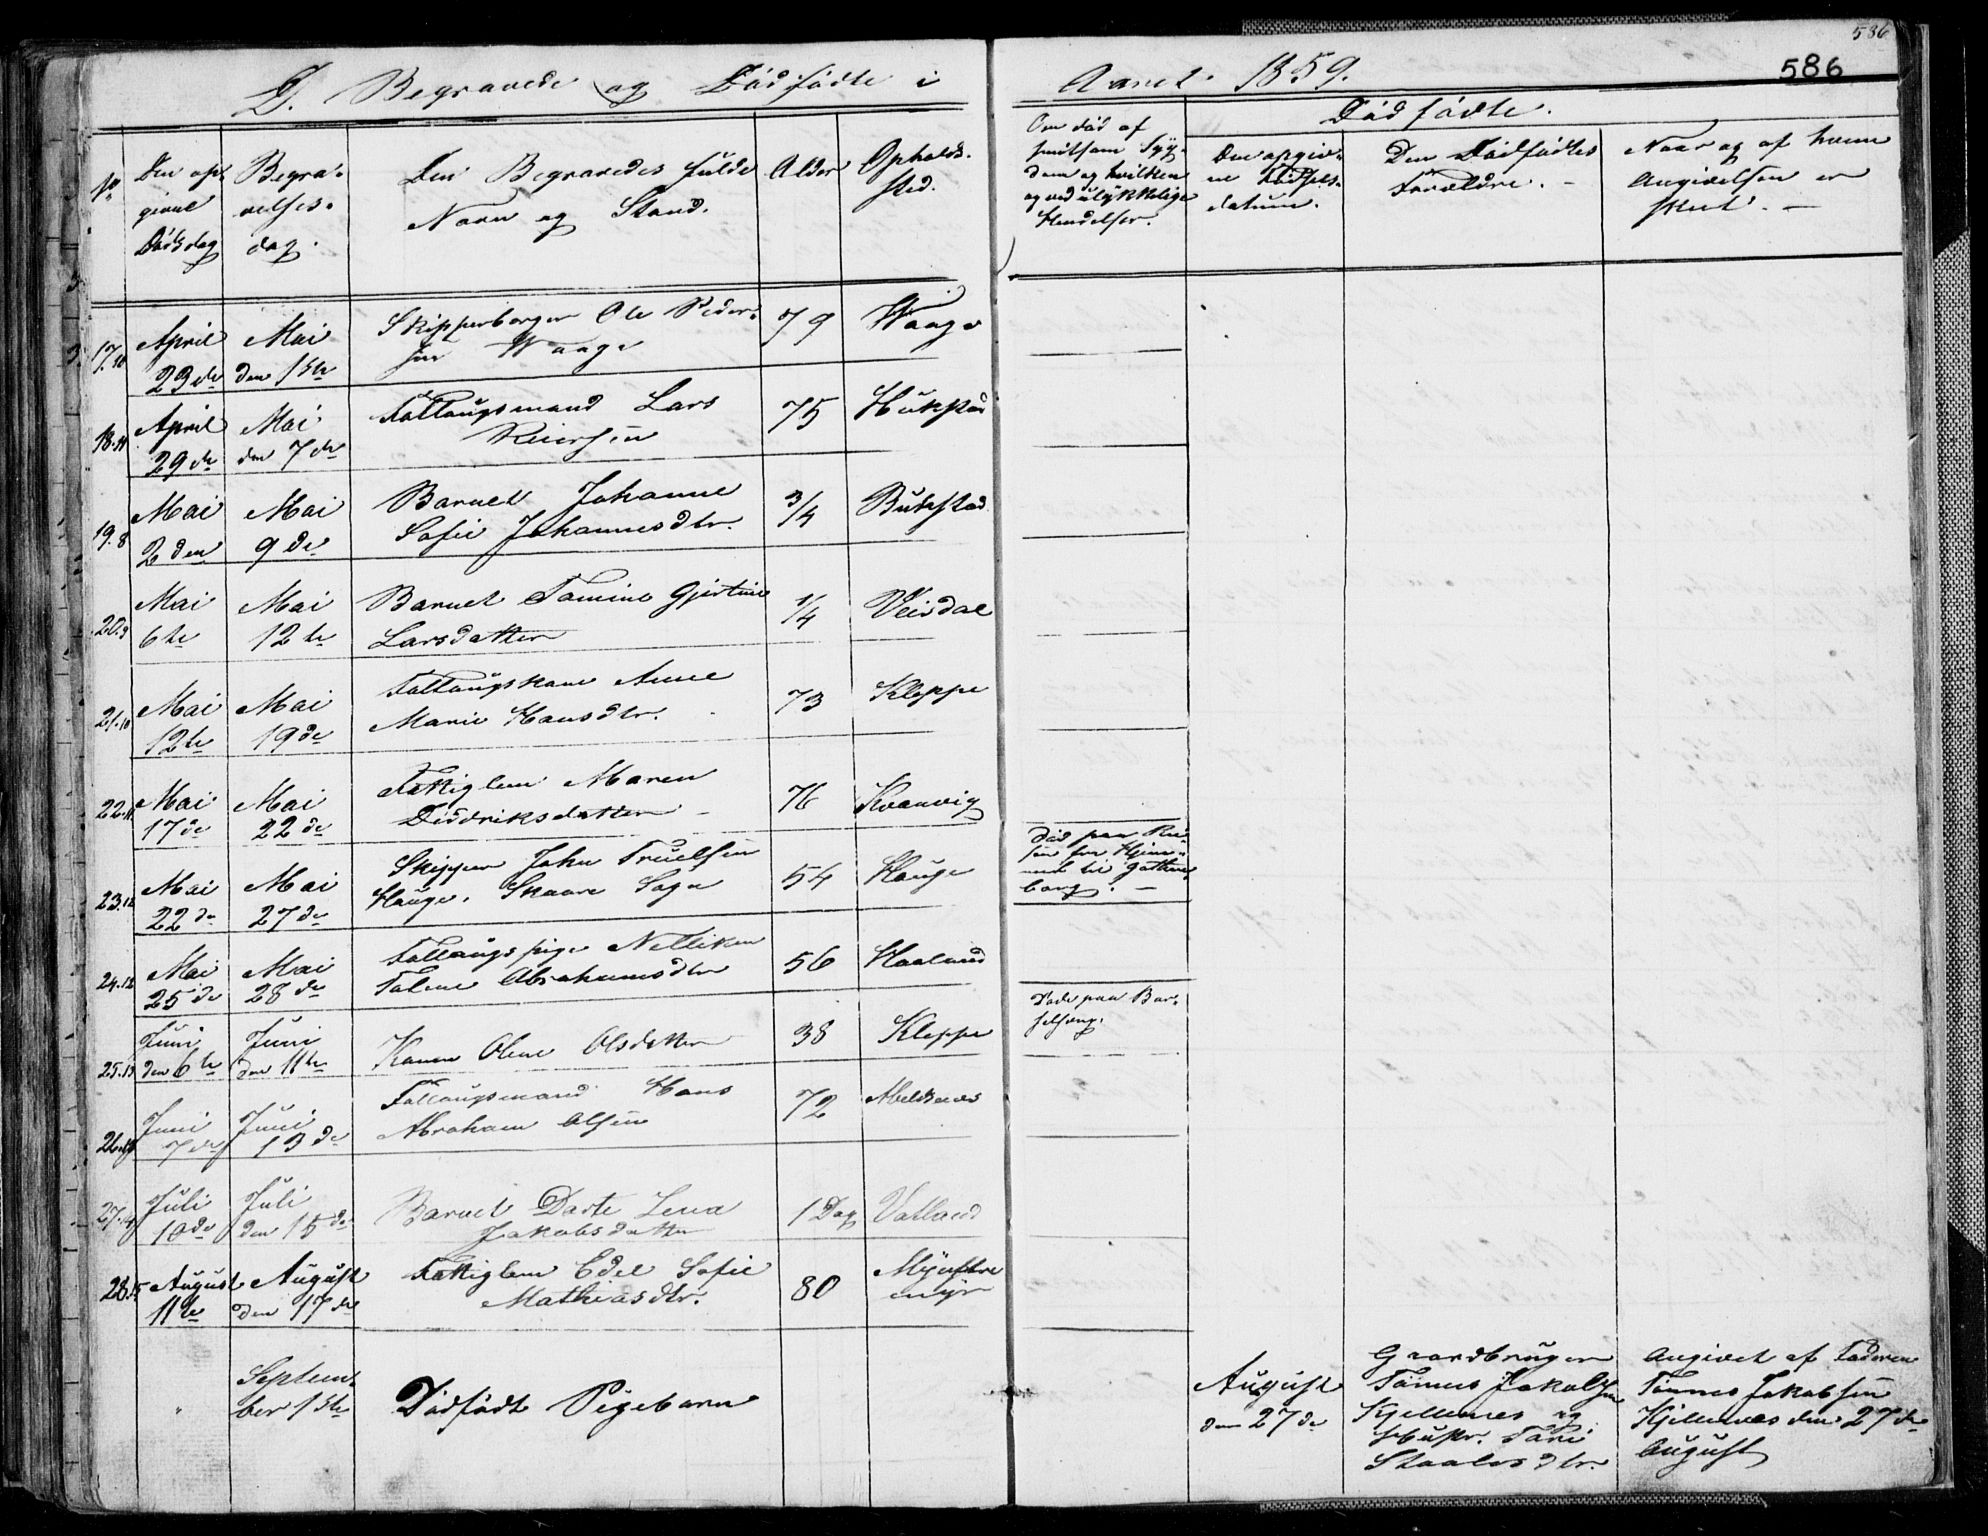 586
586
D. Begravede og Dødfødte i Aaret 1859.
No
Den op-
givne
Dødsdag
Begra-
velses-
dag.
Den Begravedes fulde
Navn og Stand.
Alder
Opholds-
sted.
Om død af
smitsom Syg-
dom og hvilken
og ved ulykkelige
Hendelser.
Dødfødte.
Den opgiv-
ne Fødsels-
datum.
Den Dødfødtes
Forældre. -
Naar og af hvem
Angivelsen er
skeet. -
17. April 23de Mai den 1ste Skipperborger Ole Peder-
sen Waage 79 Waage
18. April 29de Mai den 7de Fattaugsmand Lars
Reiersen 75
19.8 Mai 2den Mai 9de Barnet Johanne
Sofie Johannesdtr. 3/4 Bukstad
20.9 Mai 6te Mai 12te Barnet Tomine Gjertine
Larsdatter 1/4 Veisdal
21.10 Mai 12te Mai 19de Fattaugskone Anne
Marie Hansdtr. 73 Kleppe
22.11 Mai 17de Mai 22de Fattiglem Maren
Didriksdatter - 76 Kvanvig
23.12 Mai 22de Mai 27de Skipper John Truelsen
Hauge. Skaare Sogn 54 Hauge
Død paa Rei-
sen fra Hjem-
met til Gothen-
borg. -
24.12 Mai 25de Mai 28de Fattaugspige Nelliken
Talene Abrahamsdtr 56 Haaland
25.13 Juni den 6te Juni den 11te Karen Olene Olsdatter 38 Kleppe
Døde paa Bar-
selseng.
26. Juni 7de Juni 13de Fattaugsmand Hans
Abraham Olsen 72 Abelsnes
27.14 Juli 10de Juli den 15de Barnet Dorte Lena
Jakobsdatter 1 Dag Vatland
28.15 August 11te August den 17de Fattiglem Edel Sofie
Mathiasdtr. 80
myr
" Septem-
ber 1ste Dødfødt Pigebarn
August
den 27de
Gaardbruger
Tønnes Jakobsen
Kjellesnes og
Hustr. Tori
Staalesdtr.
Angivet af Faderen
Tønnes Jakobsen
Kjellesnes den 27de
August